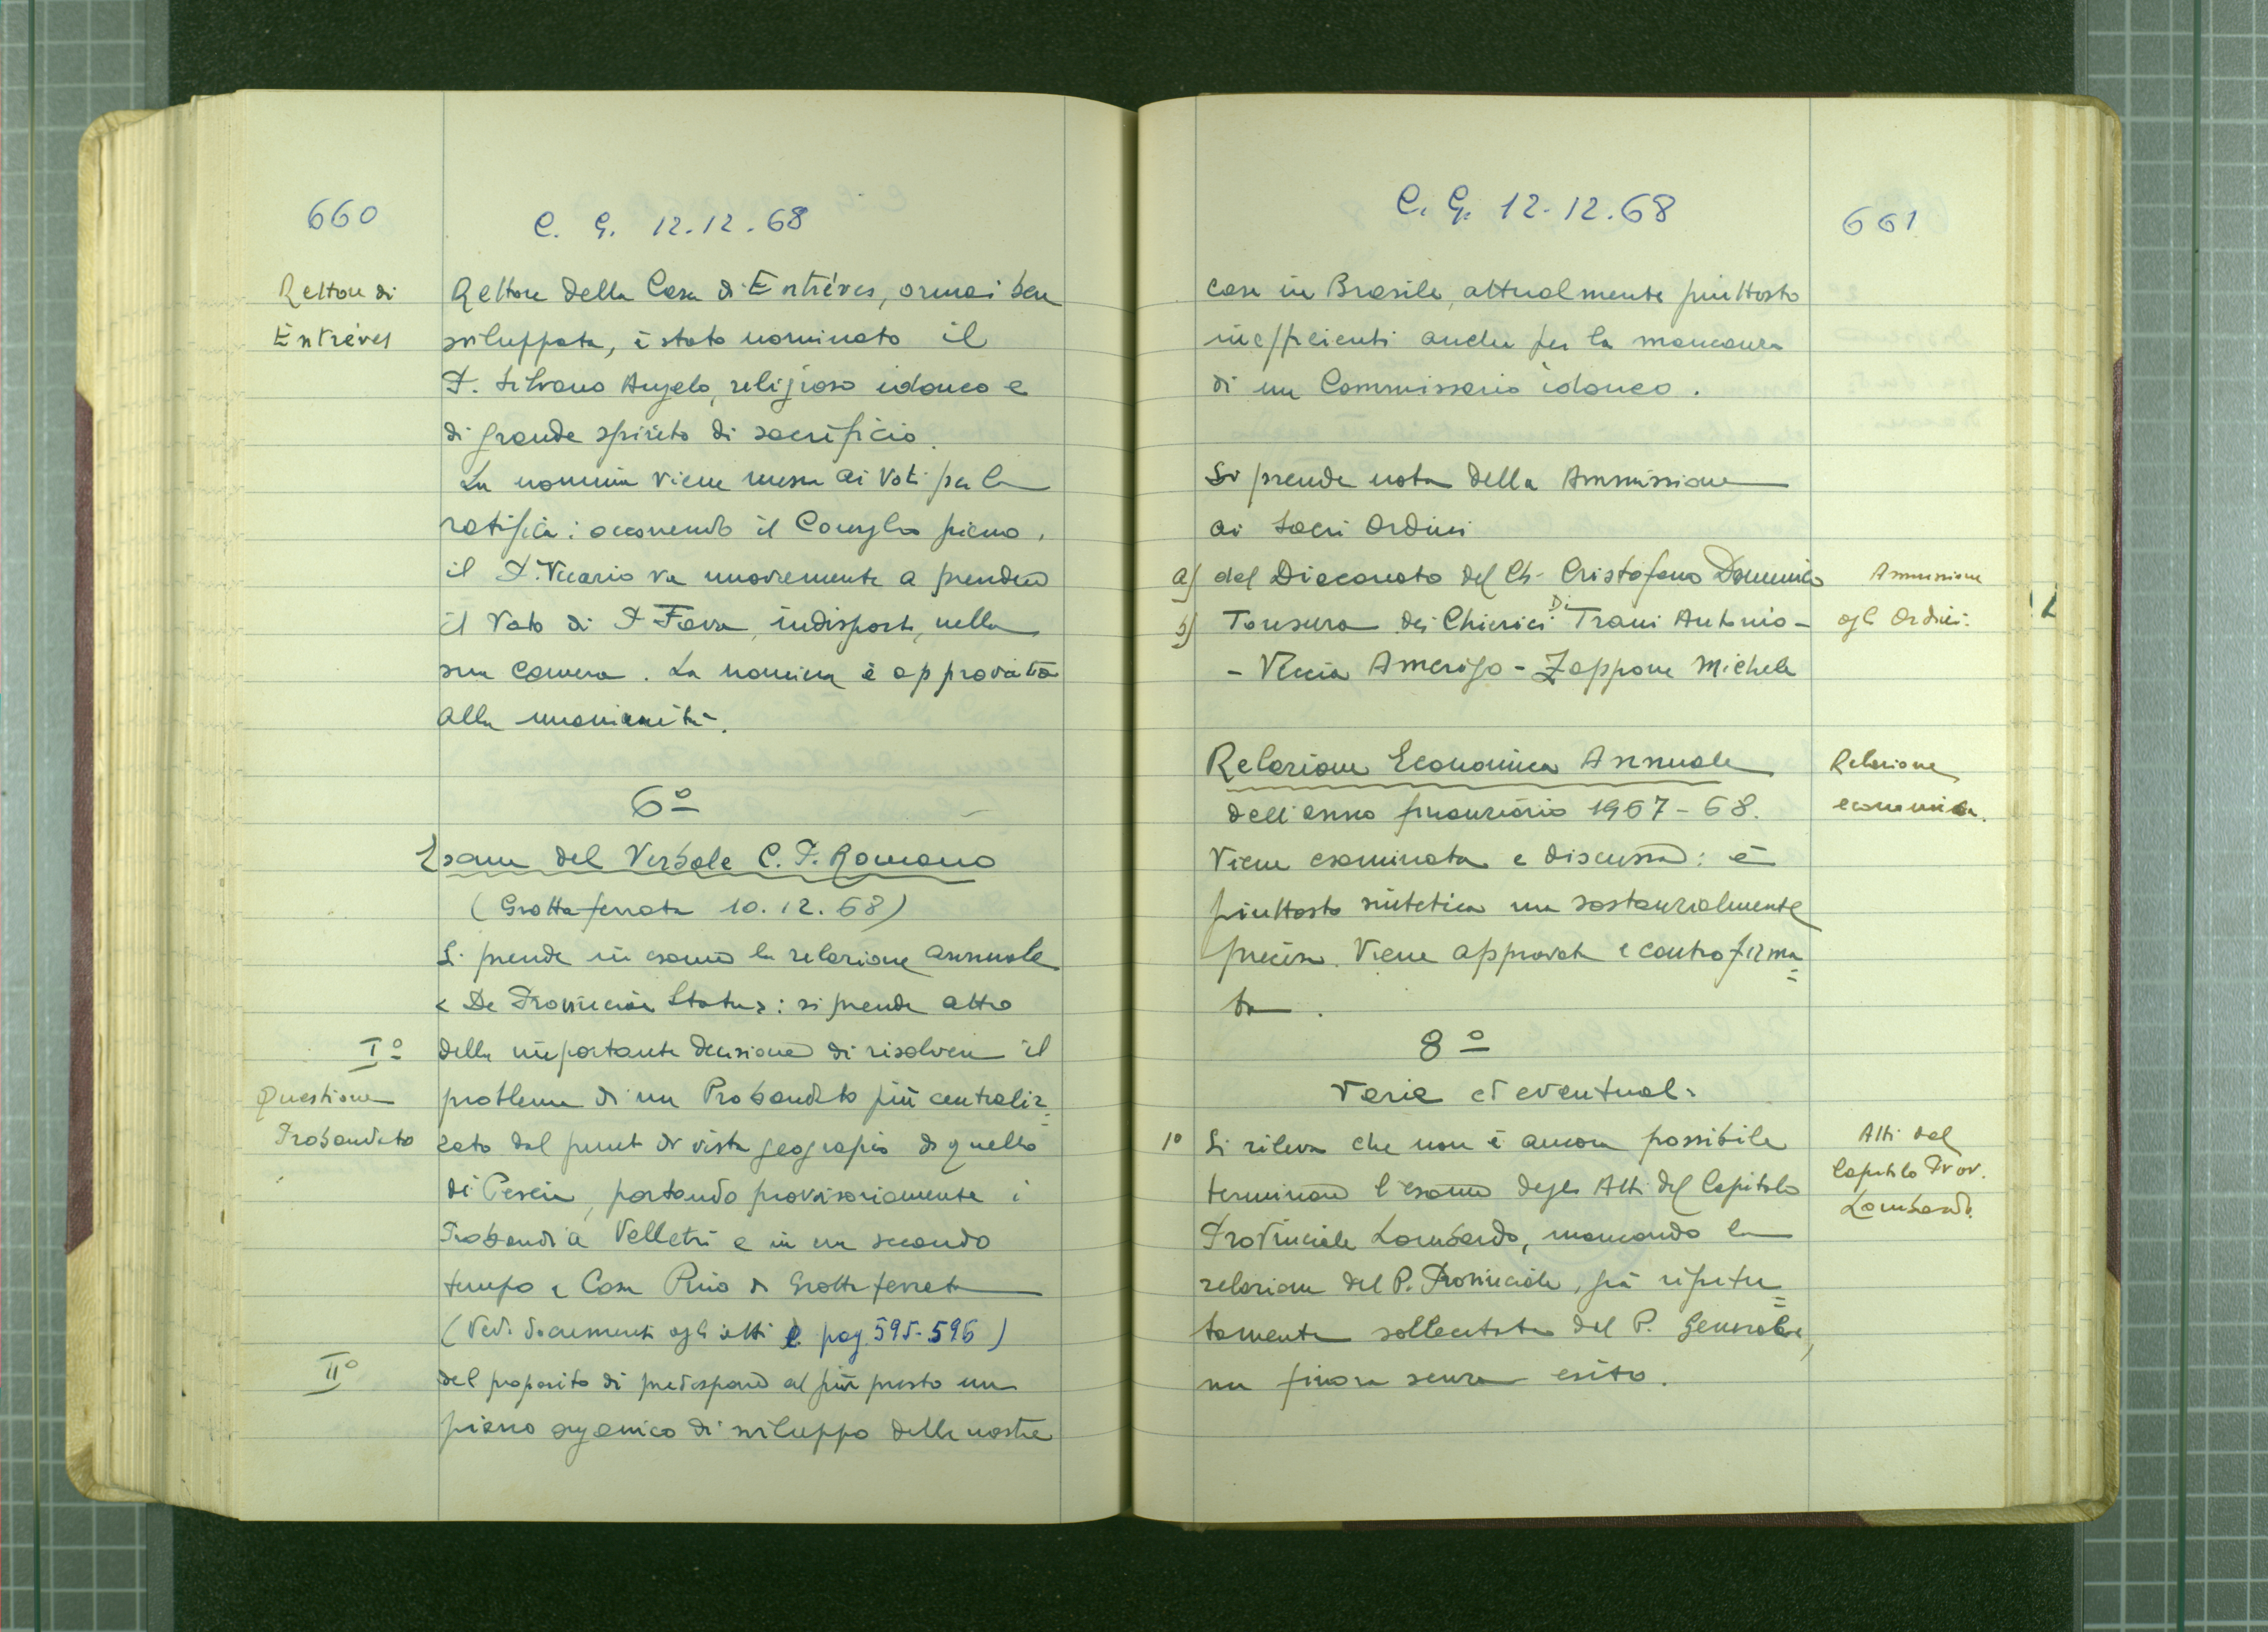 660
C. G. 12.12.68
Rettore di
Entréves
Rettore della Casa di Entréves, ormai ben
sviluppata, è stato nominato il
P. Silvano Angelo, religioso idoneo e
di grande spirito di sacrificio.
La nomina viene messa ai voti per la
ratifica: occorrendo il Consiglio pieno,
il P. Vicario va nuovamente a prendere
il Voto di P. Fava, indisposto, nella
sua camera. La nomina è approvata
alla unanimità.
6º
Esame del Verbale C. P. Romano
(Grottaferrata 10.12.68)
Si prende in esame la relazione annuale
< De Provinciae Statu >: si prende atto
Iº
della importante decisione di risolvere il
Questione
Probandato
problema di un Probandato più centraliz=
zato dal punto di vista geografico di quello
di Pescia, portando provvisoriamente i
Probandi a Velletri e in un secondo
tempo a Casa Pino di Grottaferrata
(Vedi documenti agli atti e pag. 595-596)
IIº
del proposito di predisporre al più presto un
piano organico di sviluppo delle nostre
C. G. 12-12.68
661
case in Brasile, attualmente piuttosto
inefficienti anche per la mancanza
di un Commissario idoneo.
Si prende nota della Ammissione
ai Sacri Ordini
a) del Diaconato del Ch. Cristofano Domenico
Ammissione
agli Ordini.
b) Tonsura dei Chierici Di Trani Antonio -
- Veccia Amerigo - Zappone Michele
Relazione Economica Annuale
Relazione
economica.
dell'anno finanziario 1967-68.
Viene esaminata e discussa: è
piuttosto sintetica ma sostanzialmente
precisa. Viene approvata e controfirma=
ta.
8º
Varia et eventuali
1º Si rileva che non è ancora possibile
Atti del
Capitolo Prov.
Lombardo.
terminare l'esame degli Atti del Capitolo
Provinciale Lombardo, mancando la
relazione del P. Provinciale, già ripetu=
tamente sollecitata dal P. Generale,
ma finora senza esito.